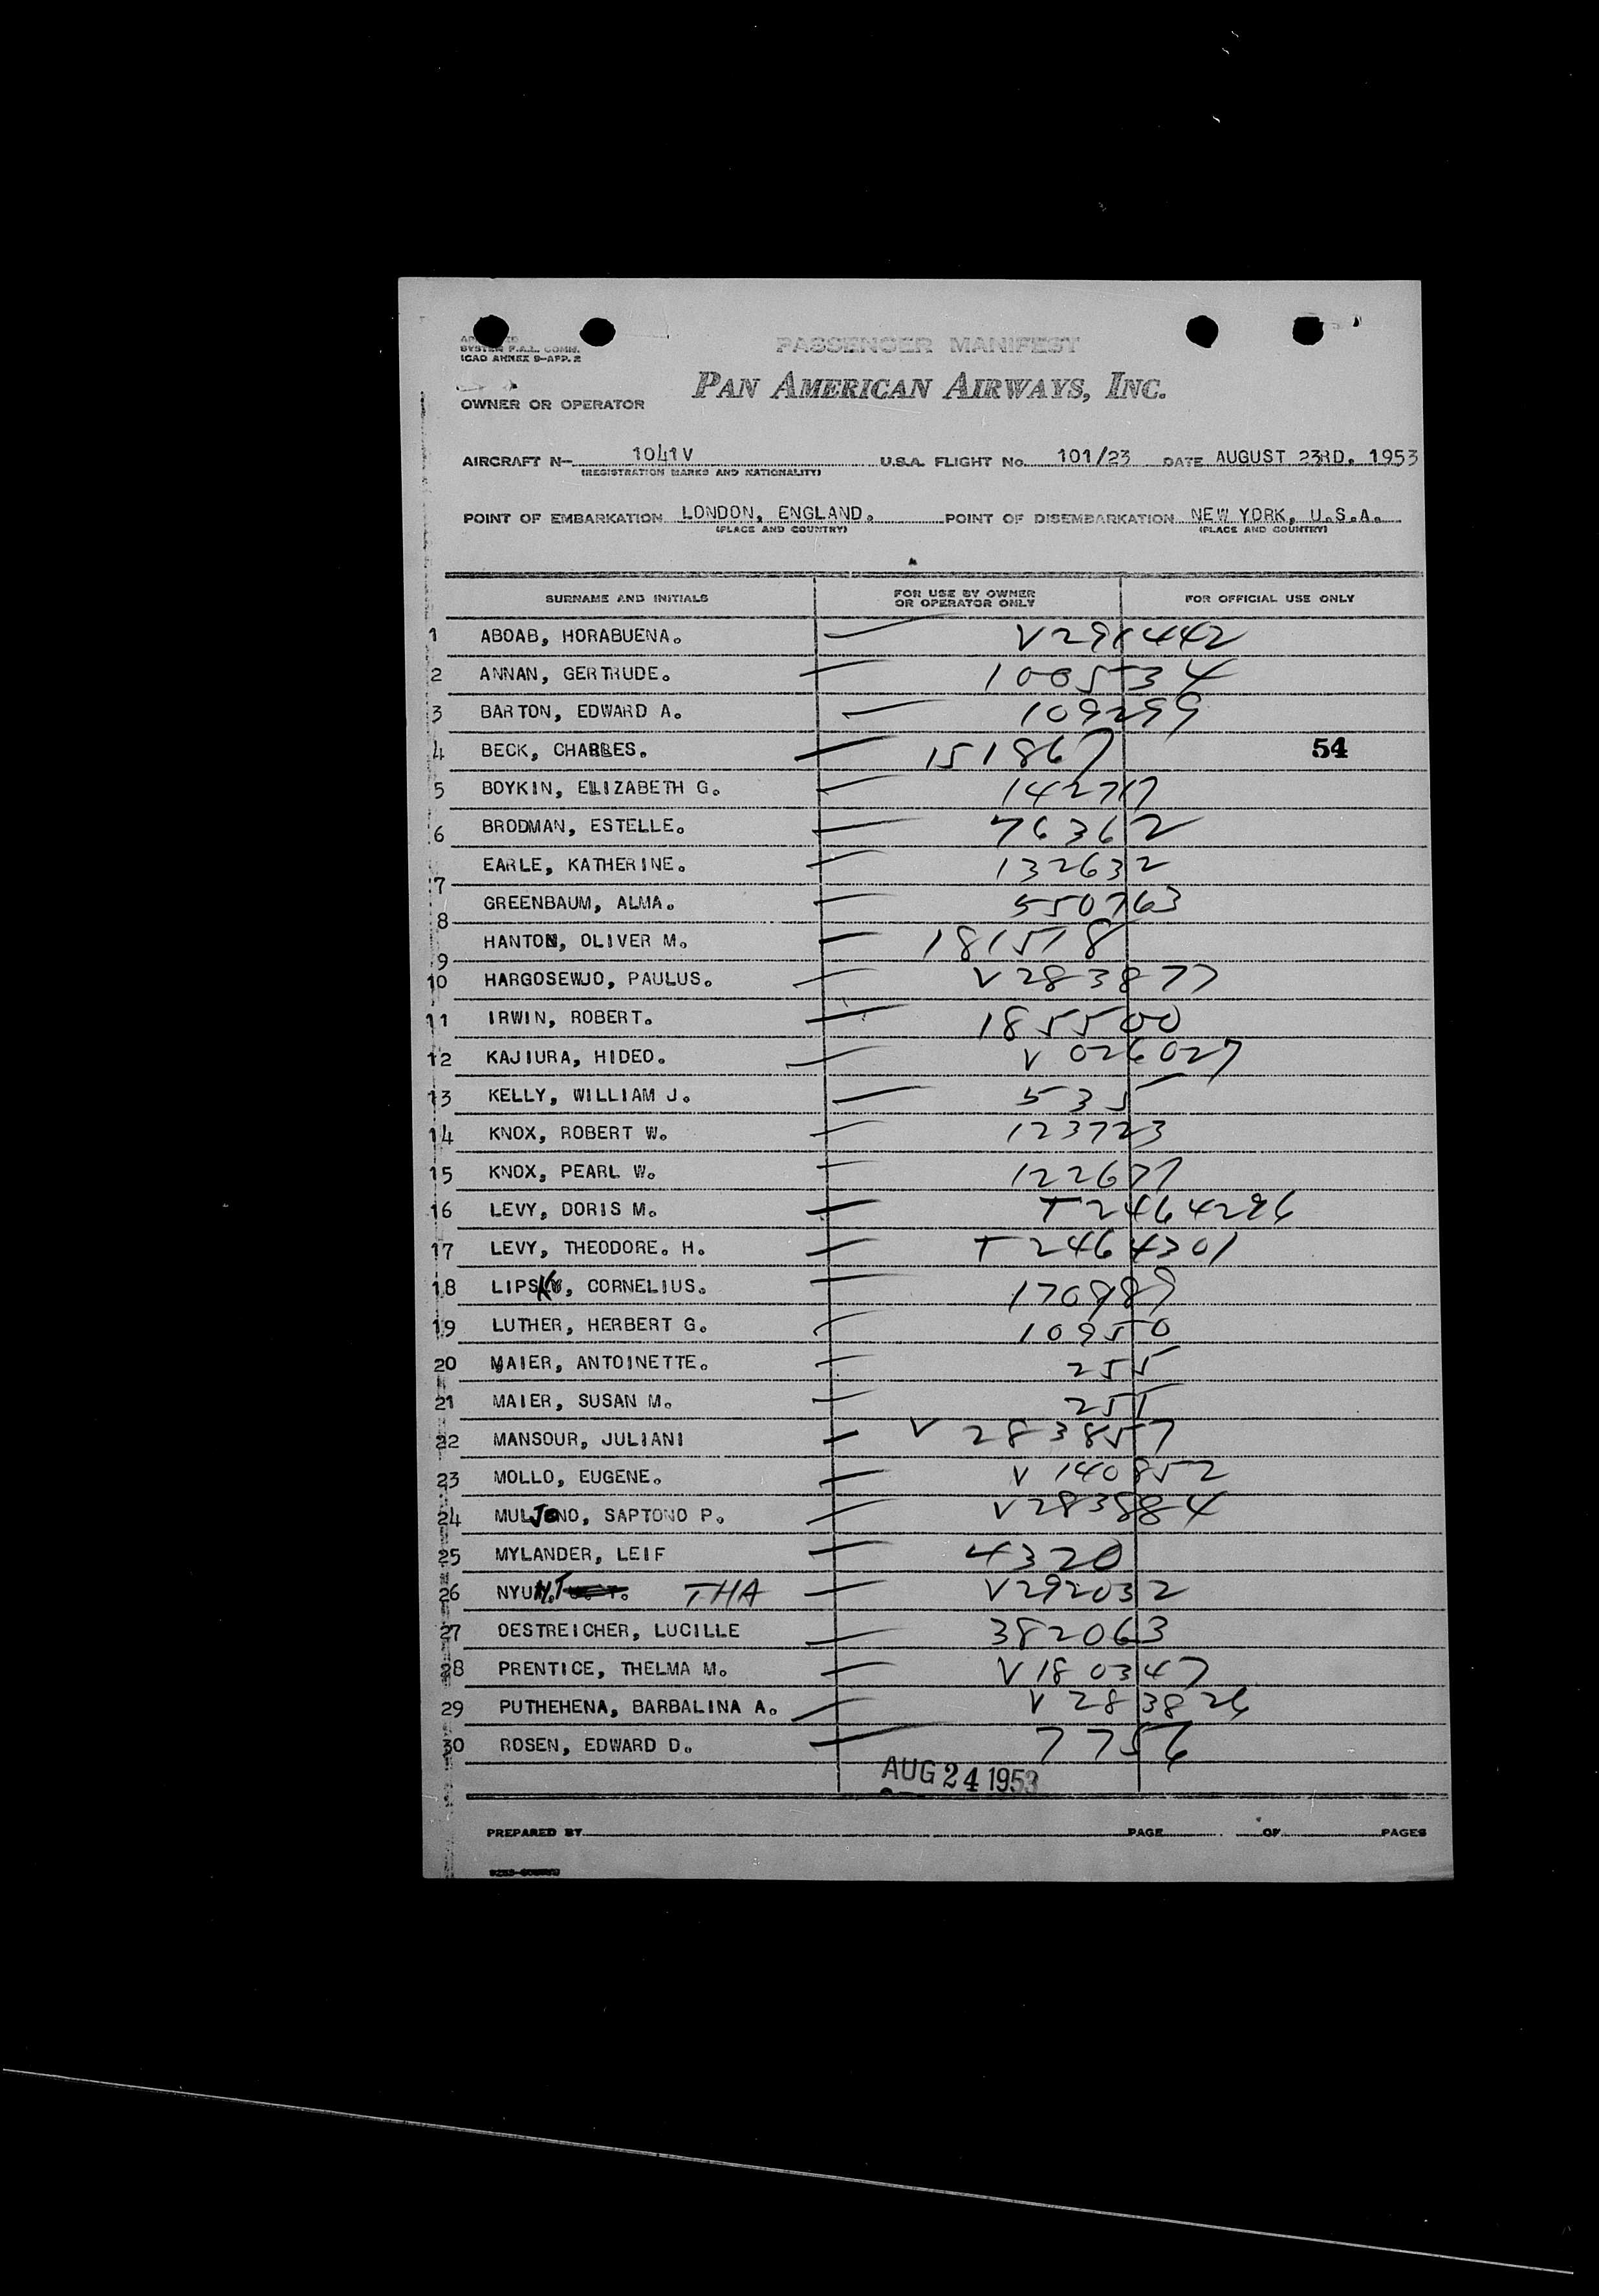 SYSTEM P.A.L. COMM.
ICAO ANNEX 9-APP. 2
PASSENGER MANIFEST
PAN AMERICAN AIRWAYS, INC.
OWNER OR OPERATOR
AIRCRAFT N- 1041V U.S.A. FLIGHT No. 101/23 DATE AUGUST 23RD. 1953
(REGISTRATION MARKS AND NATIONALITY)
POINT OF EMBARKATION LONDON, ENGLAND. POINT OF DISEMBARKATION NEW YORK, U.S.A.
(PLACE AND COUNTRY) (PLACE AND COUNTRY)
SURNAME AND INITIALS FOR USE BY OWNER OR OPERATOR ONLY FOR OFFICIAL USE ONLY
1 ABOAB, HORABUENA. V291442
2 ANNAN, GERTRUDE. 1005534
3 BARTON, EDWARD A. 109299
4 BECK, CHARLES. 151867 54
5 BOYKIN, ELIZABETH G. 142717
6 BRODMAN, ESTELLE. 76362
7 EARLE, KATHERINE. 132632
8 GREENBAUM, ALMA. 550763
9 HANTON, OLIVER M. 181518
10 HARGOSEWJO, PAULUS. V283877
11 IRWIN, ROBERT. 185500
12 KAJIURA, HIDEO. V 026027
13 KELLY, WILLIAM J. 535
14 KNOX, ROBERT W. 123723
15 KNOX, PEARL W. 122677
16 LEVY, DORIS M. T2464296
17 LEVY, THEODORE. H. T2464301
18 LIPSKY, CORNELIUS. 170989
19 LUTHER, HERBERT G. 10950
20 MAIER, ANTOINETTE. 255
21 MAIER, SUSAN M. 255
22 MANSOUR, JULIANI V 283857
23 MOLLO, EUGENE. V 140852
24 MULJONO, SAPTONO P. V283884
25 MYLANDER, LEIF 4320
26 NYUN.T THA V292032
27 OESTREICHER, LUCILLE 382063
28 PRENTICE, THELMA M. V180347
29 PUTHEHENA, BARBALINA A. V 283826
30 ROSEN, EDWARD D. 7756
AUG 24 1953
PREPARED BY PAGE OF PAGES